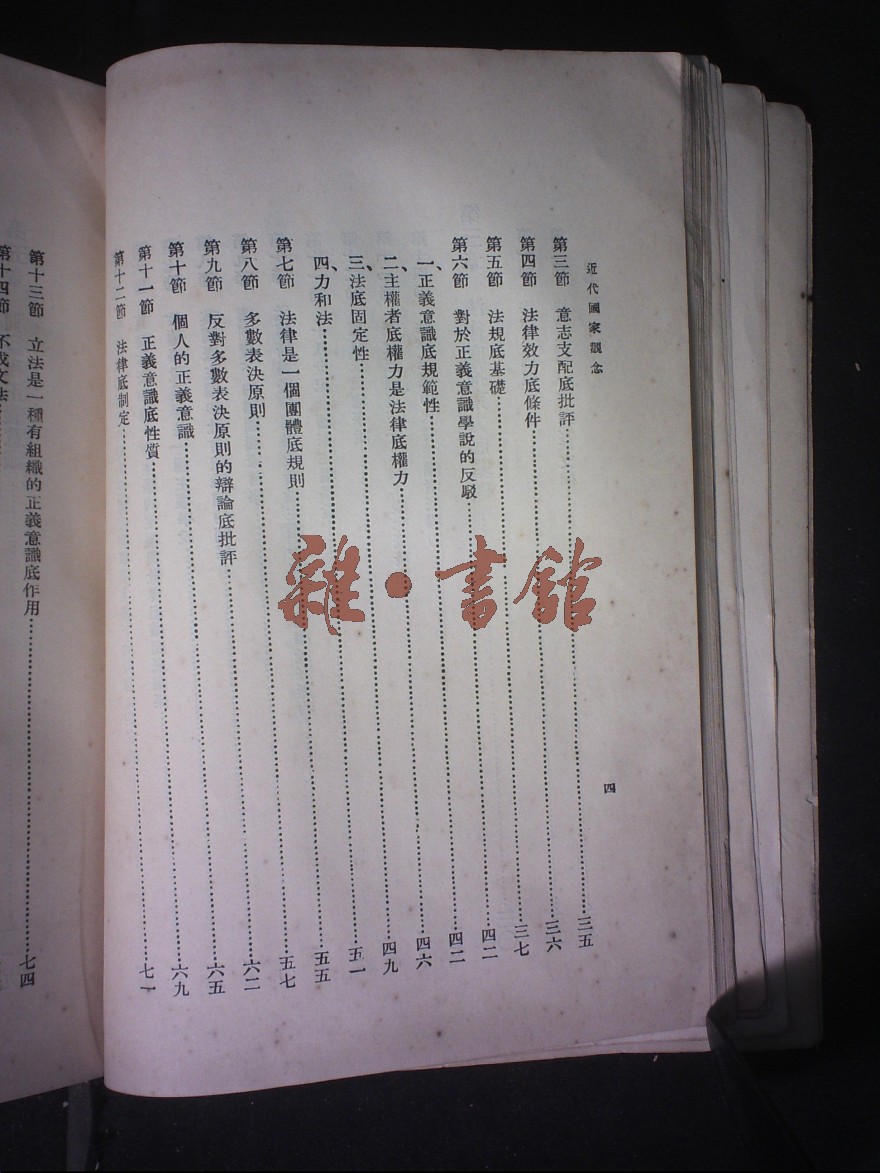 近代國家觀念
四
第三節 意志支配底批評……三五
第四節 法律效力底條件……三六
第五節 法規底基礎……三七
第六節 對於正義意識學說的反駁……四二
一、正義意識底規範性……四二
二、主權者底權力是法律底權力……四六
三、法底固定性……四九
四、力和法……五一
第七節 法律是一個團體底規則……五五
第八節 多數表決原則……五七
第九節 反對多數表決原則的辯論底批評……六二
第十節 個人的正義意識……六五
第十一節 正義意識底性質……六九
第十二節 法律底制定……七一
第十三節 立法是一種有組織的正義意識底作用……七四
第十四節 不成文法……
雜·書館